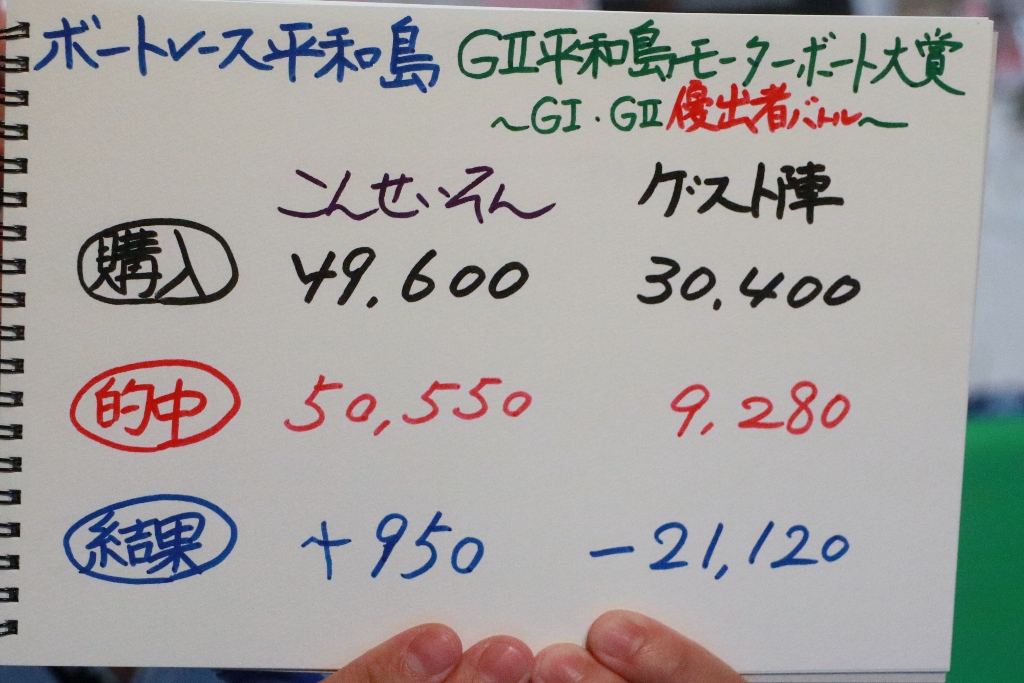 ボートレース平和島 GⅡ平和島モーターボート大賞
～GⅠ・GⅡ優出者バトル～
こんせいそん ゲスト陣
購入 49,600 30,400
的中 50,550 9,280
結果 +950 -21,120